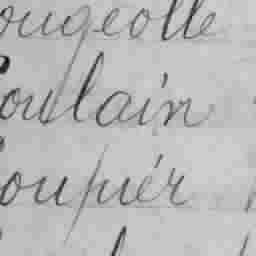 ougeolle
Poulain
oupier